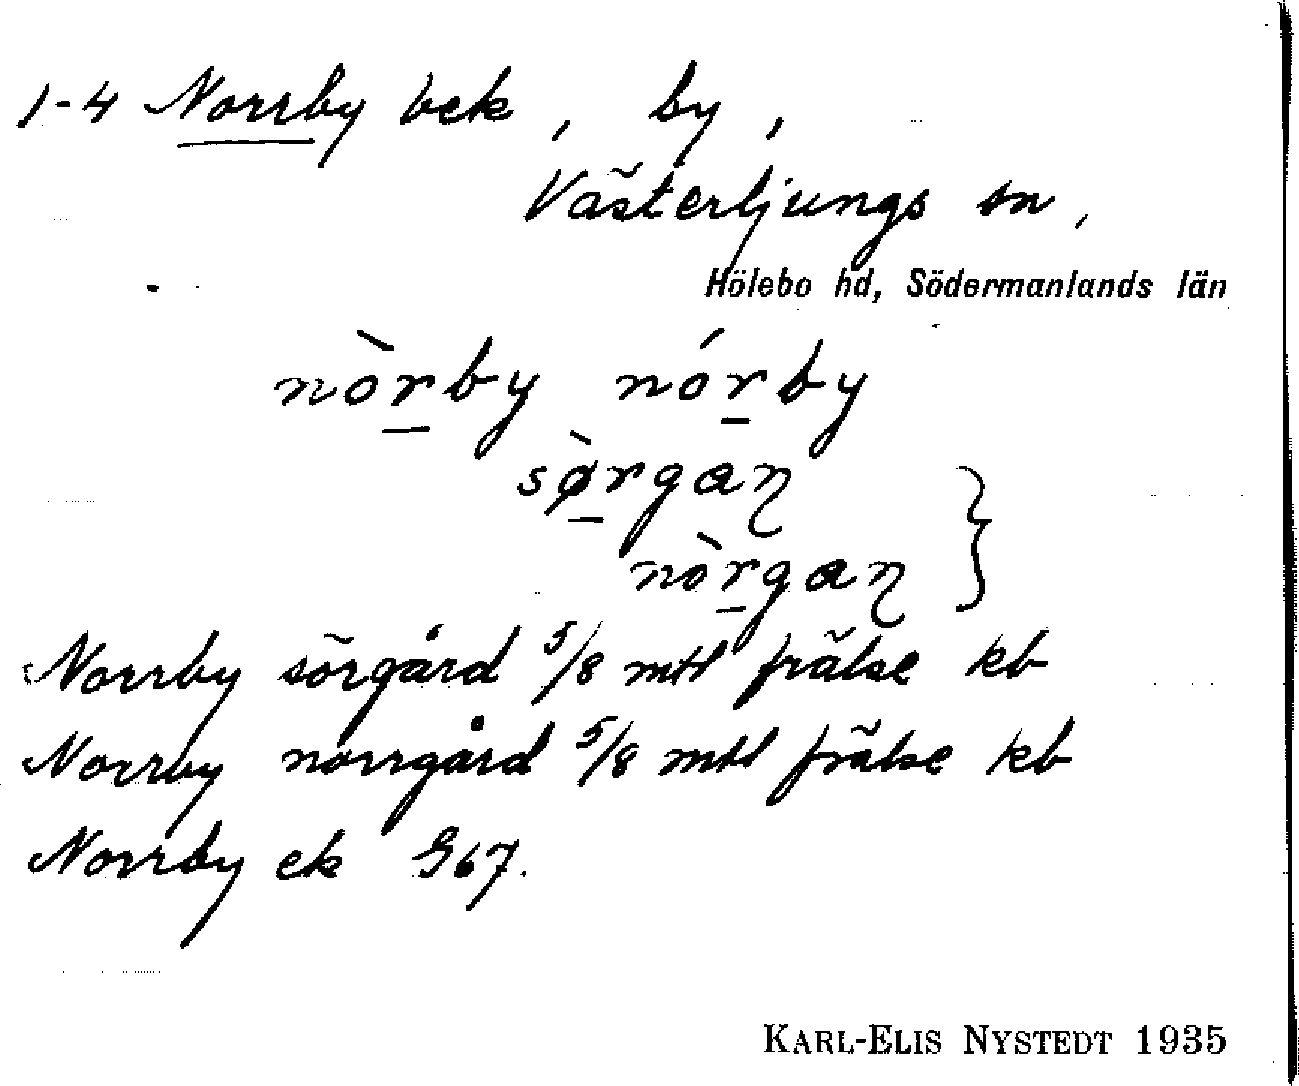 1-4 Norrby bek, by,
Västerljungs sn,
Hölebo hd, Södermanlands län
nòrby nórby
sø̀rgaɳ
nòrgaɳ }
Norrby sörgård 5/8 mtl frälse kb
Norrby norrgård 5/8 mtl frälse kb
Norrby ek G67.
KARL-ELIS NYSTEDT 1935